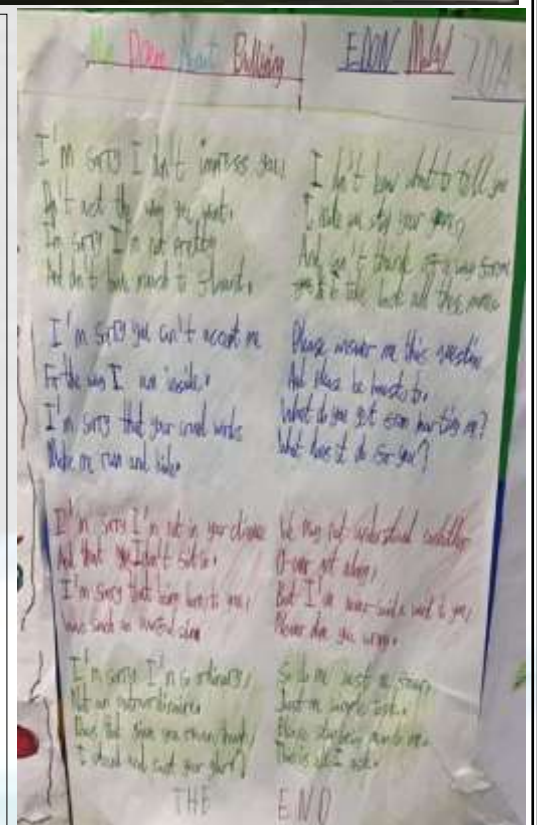 My Poem About Bullying
EDON
7DA
I'm sorry I don't impress you,
Don't act the way you want,
I'm sorry I'm not pretty
And don't have much to flaunt.
I'm sorry you can't accept me
For the way I am inside.
I'm sorry that your cruel words
Make me run and hide.
I'm sorry I'm not in your
And that I don't
I'm sorry that being to me,
such an
I'm sorry I'm ordinary,
Not an extraordinaire.
Does that give you the right,
I and your
I don't know what to tell you
I
And can't think of a way
take back all
Please answer me this question
And please be honest too,
What do you get from hurting me?
What does it do for you?
We may not understand
Or ever get along,
But I've never said a word to you,
Never done you wrong.
So do me just a favor,
Just a simple task.
Please stop being mean to me.
This is all I ask.
THE END